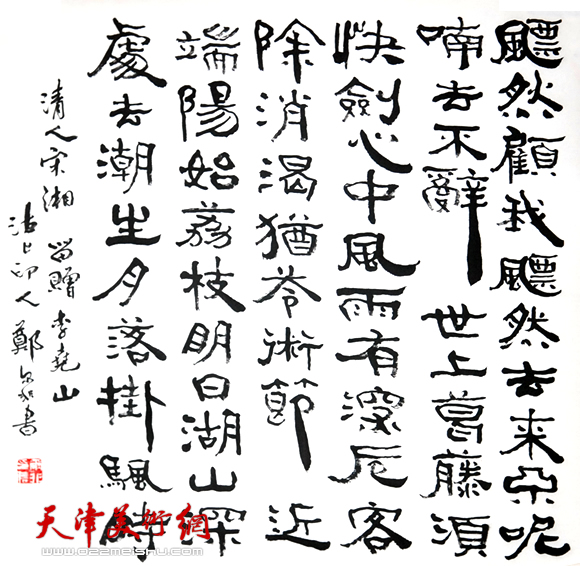 飄然顧我飄然去来朵呢
喃去不辭 世上葛藤須
快劍心中風雨有深卮客
除消渴猶苓術節 近
端陽始荔枝明日湖山深
處去潮生月落掛颿時
清人宋湘 留贈李堯山
沽上印人鄭書
天津美術網
www.022meishu.com